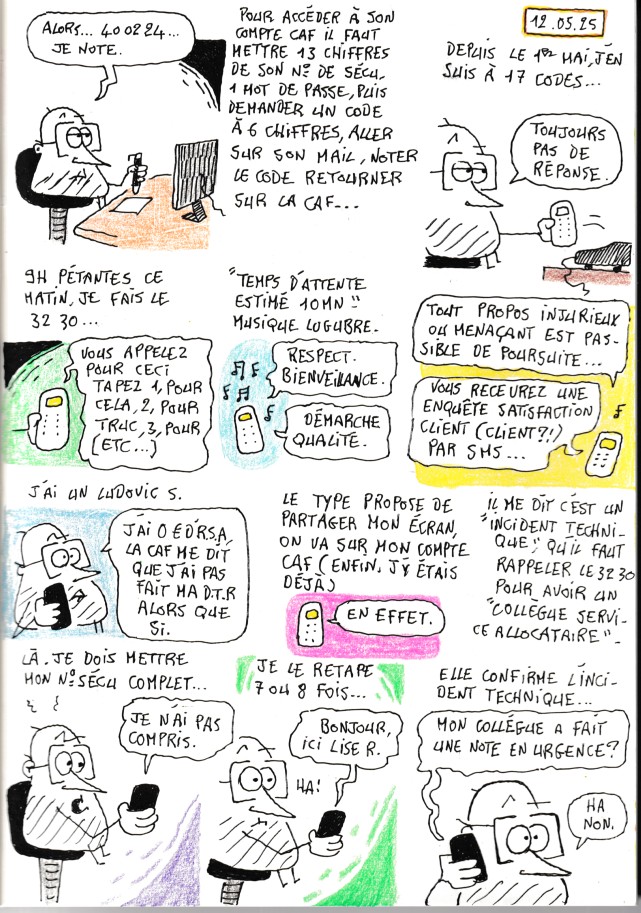 ALORS... 40 02 24...
JE NOTE.
POUR ACCÉDER À SON
COMPTE CAF IL FAUT
METTRE 13 CHIFFRES
DE SON Nº DE SÉCU,
1 MOT DE PASSE, PUIS
DEMANDER UN CODE
À 6 CHIFFRES, ALLER
SUR SON MAIL, NOTER
LE CODE RETOURNER
SUR LA CAF...
12.05.25
DEPUIS LE 1ER MAI, J'EN
SUIS À 17 CODES...
TOUJOURS
PAS DE
RÉPONSE.
9H PÉTANTES CE
MATIN, JE FAIS LE
32 30...
VOUS APPELEZ
POUR CECI
TAPEZ 1, POUR
CELA, 2, POUR
TRUC, 3, POUR
(ETC...)
"TEMPS D'ATTENTE
ESTIMÉ 10MN"
MUSIQUE LUGUBRE.
RESPECT.
BIENVEILLANCE.
DÉMARCHE
QUALITÉ.
TOUT PROPOS INJURIEUX
OU MENAÇANT EST PAS-
SIBLE DE POURSUITE...
VOUS RECEVREZ UNE
ENQUÊTE SATISFACTION
CLIENT (CLIENT?!)
PAR SMS...
J'AI UN LUDOVIC S.
J'AI 0 € D'RSA,
LA CAF ME DIT
QUE J'AI PAS
FAIT MA D.T.R
ALORS QUE
SI.
LE TYPE PROPOSE DE
PARTAGER MON ÉCRAN,
ON VA SUR MON COMPTE
CAF (ENFIN, J'Y ÉTAIS
DÉJÀ)
EN EFFET.
IL ME DIT C'EST UN
"INCIDENT TECHNI-
QUE", QU'IL FAUT
RAPPELER LE 32 30
POUR AVOIR UN
"COLLÈGUE SERVI-
CE ALLOCATAIRE".
LÀ, JE DOIS METTRE
MON Nº SÉCU COMPLET...
JE N'AI PAS
COMPRIS.
JE LE RETAPE
7 OU 8 FOIS...
BONJOUR,
ICI LISE R.
HA!
ELLE CONFIRME L'INCI-
DENT TECHNIQUE...
MON COLLÈGUE A FAIT
UNE NOTE EN URGENCE?
HA
NON.